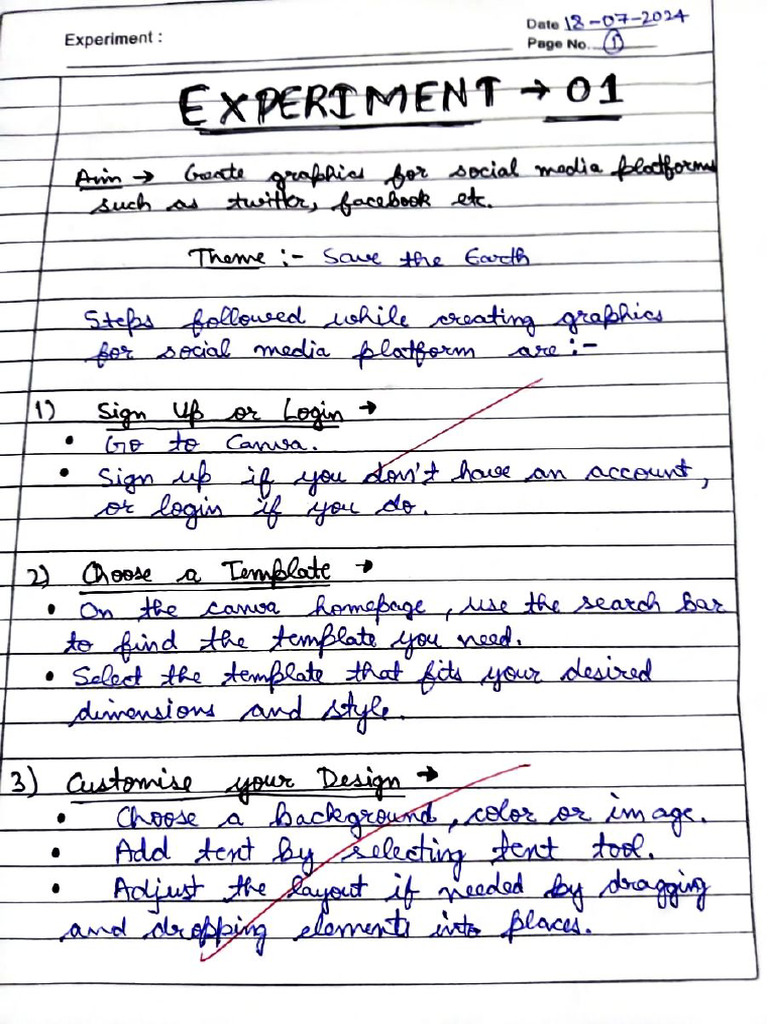 Experiment :
Date 18-07-2024
Page No. 1
EXPERIMENT → 01
Aim → Create graphics for social media platforms
such as twitter, facebook etc.
Theme :- Save the Earth
Steps followed while creating graphics
for social media platform are :-
1) Sign Up or Login →
• Go to Canva.
• Sign up if you don't have an account,
or login if you do.
2) Choose a Template →
• On the canva homepage, use the search bar
to find the template you need.
• Select the template that fits your desired
dimensions and style.
3) Customise your Design →
• Choose a background, color or image.
• Add text by selecting text tool.
• Adjust the layout if needed by dragging
and dropping elements into places.